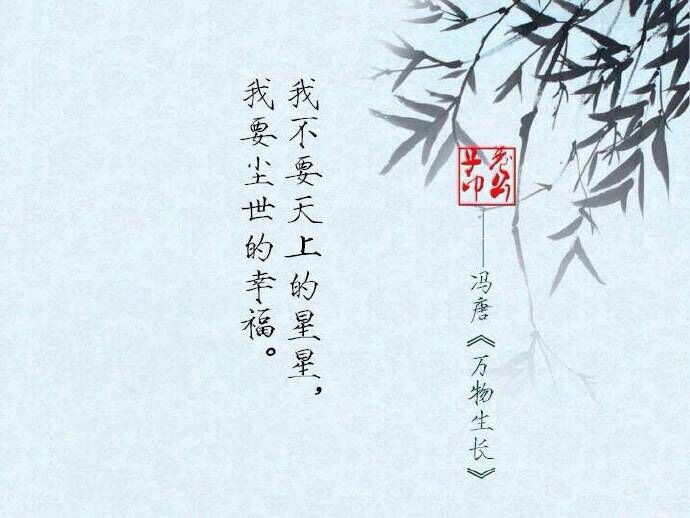 我不要天上的星星，
我要尘世的幸福。
——冯唐《万物生长》